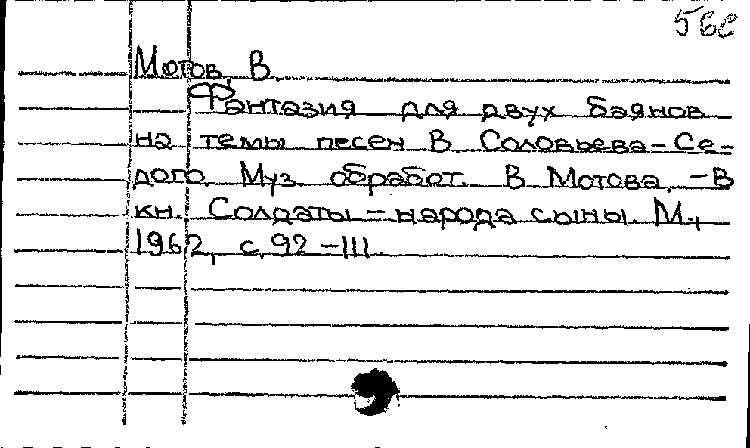 56с
Мотов, В.
Фантазия для двух баянов
на темы песен В. Соловьева-Се-
дого. Муз. обработ. В. Мотова. -В
кн. Солдаты - народа сыны. М.,
1962, с. 92-111.